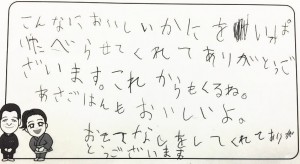 こんなにおいしいかにをいっぱ
いたべらせてくれてありがとうご
ざいます。これからもくるね。
あさごはんもおいしいよ。
おもてなしをしてくれてありが
とうございます